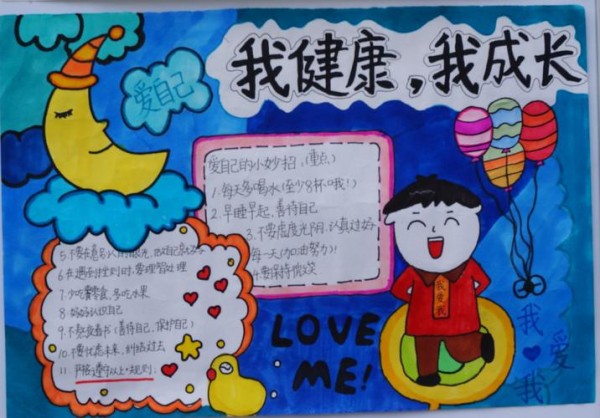 我健康，我成长
爱自己
爱自己的小妙招，(重点)
1.每天多喝水(至少8杯哦！)
2.早睡早起，善待自己
3.不要虚度光阴，认真过好
每一天(加油努力)！
4.要保持微笑
5.不要在意别人的眼光，做好自己
6.在遇到挫折时，要理智处理
7.少吃零食，多吃水果
8.好好认识自己
9.不熬夜看书(善待自己，保护自己)
10.不要忧虑未来，纠结过去
11.严格遵守以上规则
我爱我
LOVE
ME!
我
爱
我